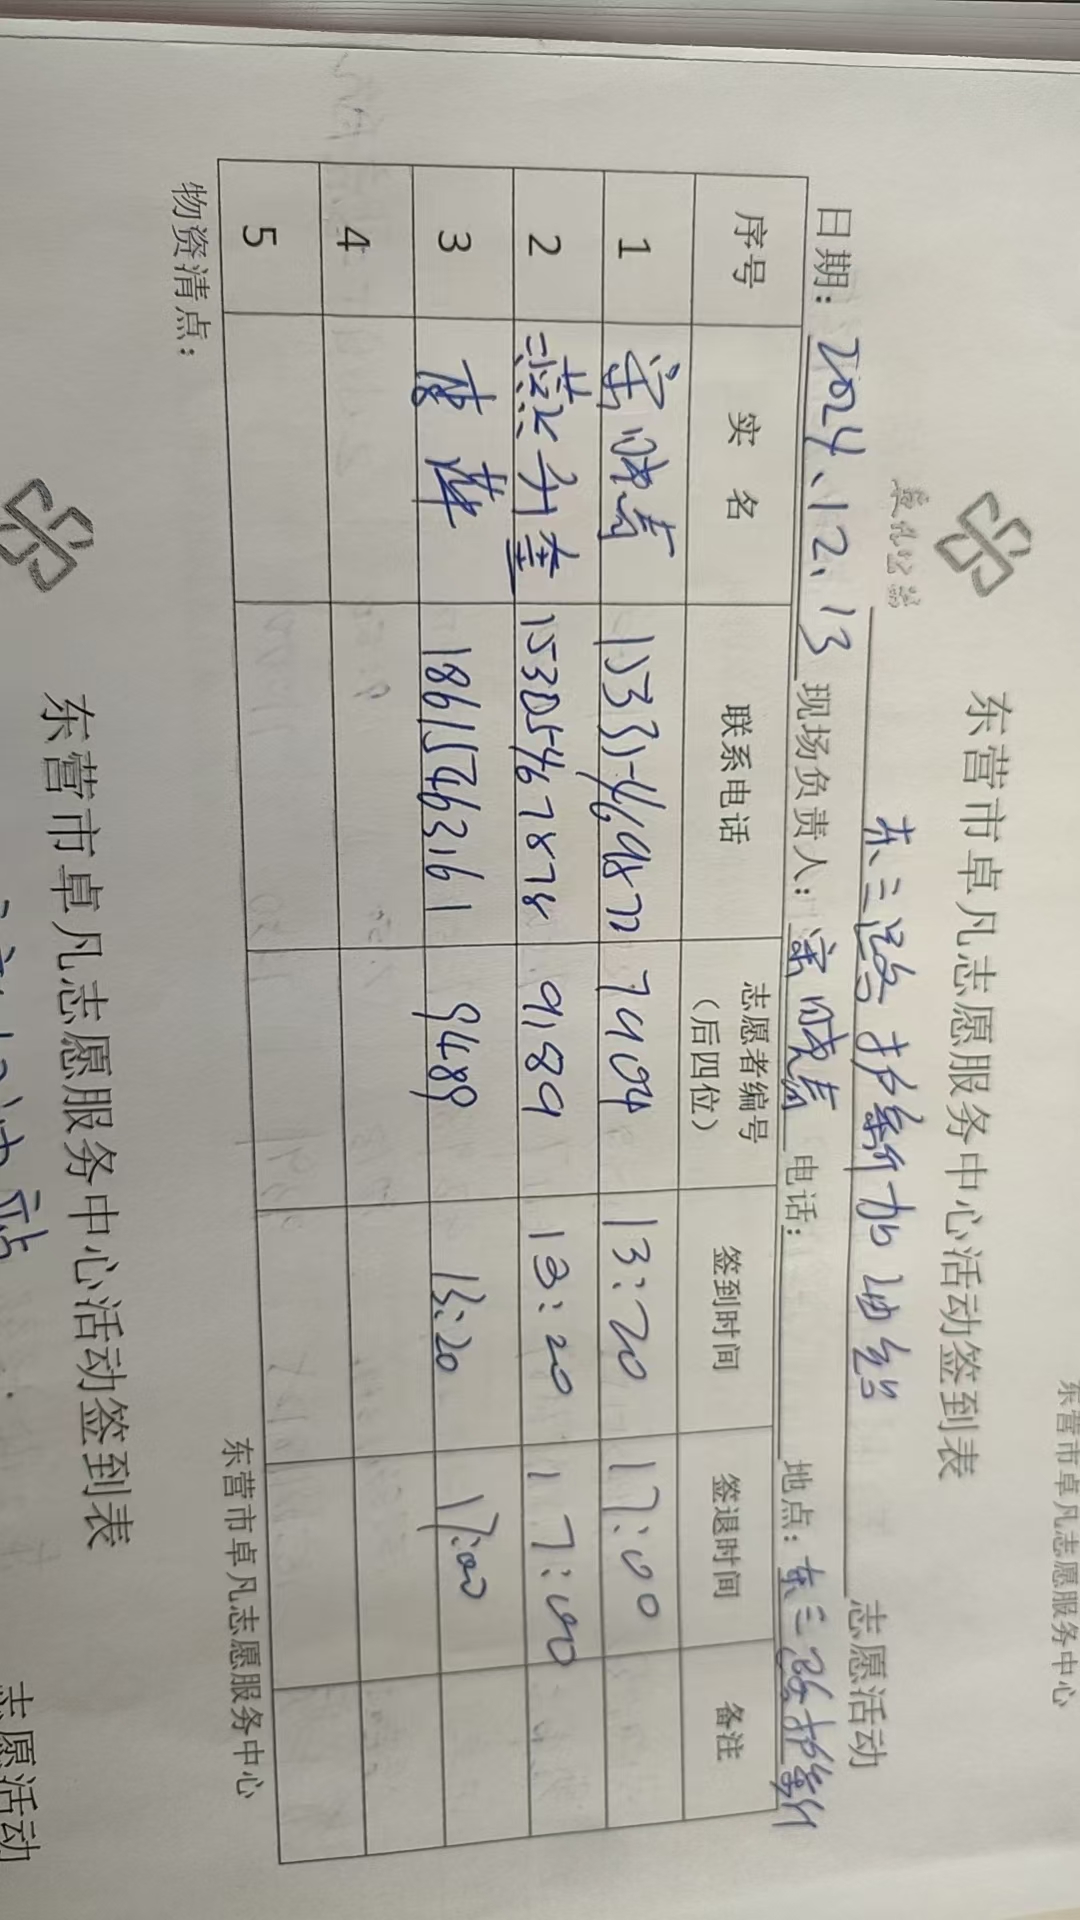 东营市卓凡志愿服务中心
东营市卓凡志愿服务中心活动签到表
东三路护新加油站 志愿活动
日期：2024、12、13 现场负责人： 电话： 地点：东三路护新
序号 实 名 联系电话 志愿者编号（后四位） 签到时间 签退时间 备注
1 7404 13:20 17:00
2 燕升奎 15305467878 9189 13:20 17:00
3 18615463161 9489 13:20 17:00
4
5
物资清点：
东营市卓凡志愿服务中心
东营市卓凡志愿服务中心活动签到表
志愿活动